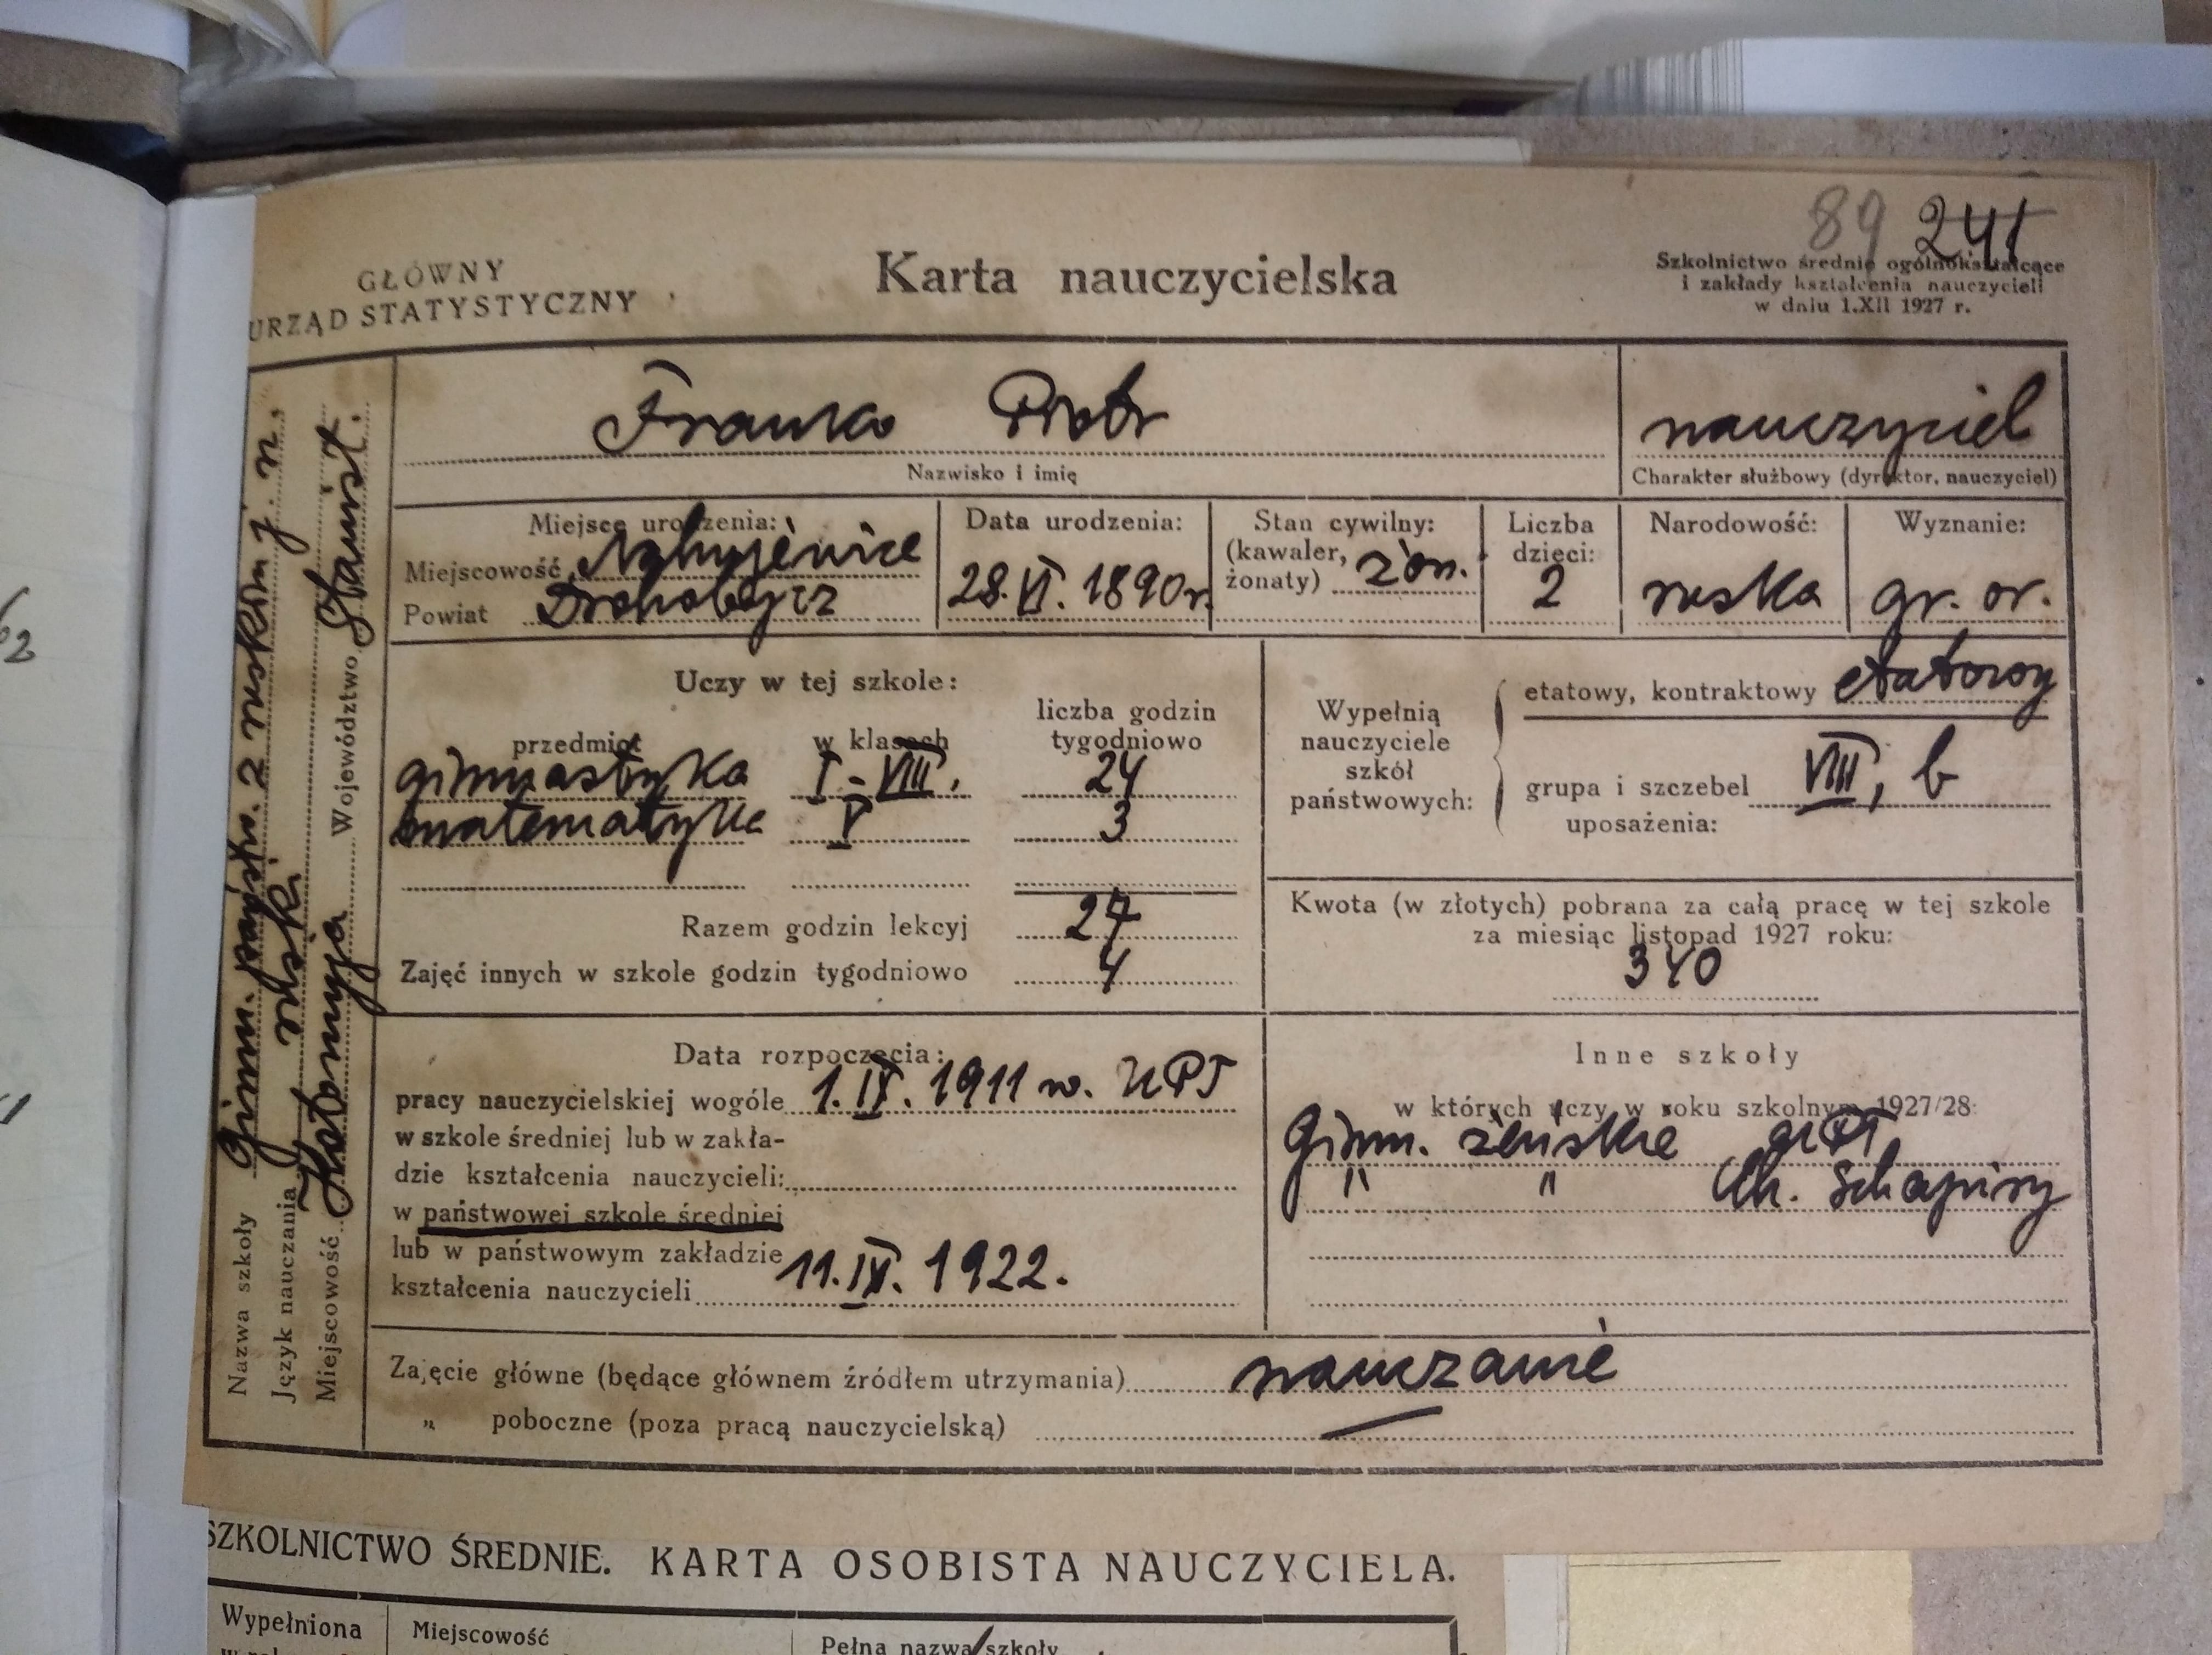 89 241
GŁÓWNY
URZĄD STATYSTYCZNY
Karta nauczycielska
Szkolnictwo średnie ogólnokształcące
i zakłady kształcenia nauczycieli
w dniu 1.XII 1927 r.
Nazwa szkoły Gimn. państw. z ruskim j. n.
Język nauczania ruski
Miejscowość Kołomyja Województwo Stanisł.
Franko Piotr
Nazwisko i imię
nauczyciel
Charakter służbowy (dyrektor, nauczyciel)
Miejsce urodzenia:
Miejscowość Nahujewice
Powiat Drohobycz
Data urodzenia:
28.VI. 1890 r.
Stan cywilny:
(kawaler,
żonaty) żon.
Liczba
dzieci:
2
Narodowość:
ruska
Wyznanie:
gr. or.
Uczy w tej szkole:
przedmiot w klasach liczba godzin
tygodniowo
gimnastyka I-VIII. 24
matematyka V 3
Razem godzin lekcyj 27
Zajęć innych w szkole godzin tygodniowo 4
Wypełnią
nauczyciele
szkół
państwowych:
etatowy, kontraktowy etatowy
grupa i szczebel VIII, b
uposażenia:
Kwota (w złotych) pobrana za całą pracę w tej szkole
za miesiąc listopad 1927 roku:
340
Data rozpoczęcia:
pracy nauczycielskiej wogóle 1.IX. 1911 w. UPT
w szkole średniej lub w zakła-
dzie kształcenia nauczycieli:
w państwowej szkole średniej
lub w państwowym zakładzie
kształcenia nauczycieli 11.IX. 1922.
Inne szkoły
w których uczy w roku szkolnym 1927/28:
Gimn. żeńskie
" " Ch. Schapiry
Zajęcie główne (będące głównem źródłem utrzymania) nauczanie
" poboczne (poza pracą nauczycielską) —
SZKOLNICTWO ŚREDNIE. KARTA OSOBISTA NAUCZYCIELA.
Wypełniona
Miejscowość
Pełna nazwa szkoły